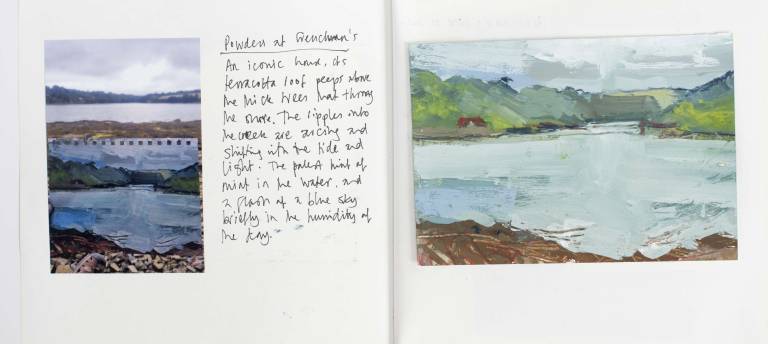 Powders at Frenchman's
An iconic home, its
terracotta roof peeps above
the thick trees that throng
the shore. The ripples into
the creek are arcing and
shifting with the tide and
light. The palest hint of
mint in the water, and
a flash of a blue sky
briefly in the humidity of
the day.